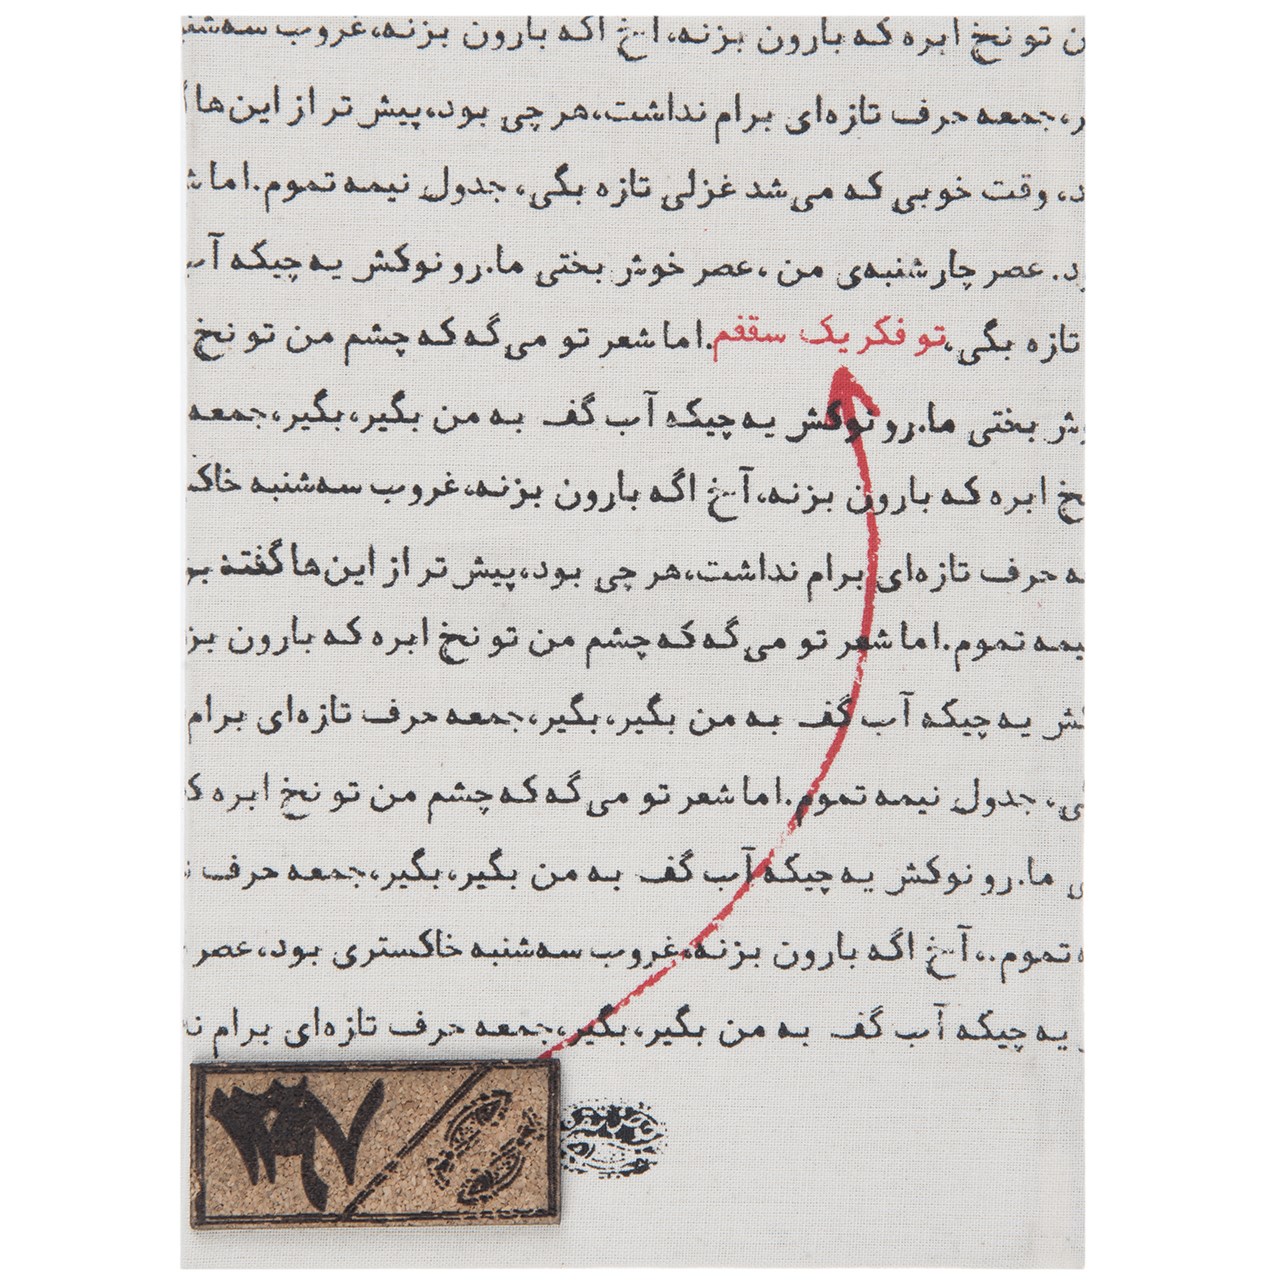 ن تو نخ ابره که بارون بزنه، آخ اگه بارون بزنه،غروب سه‌شنب
ر، جمعه حرف تازه‌ای برام نداشت،هر چی بود،پیش تر از این‌ها
د، وقت خوبی که می‌شد غزلی تازه بگی، جدول نیمه تموم.اما ش
د. عصر چارشنبه‌ی من ،عصر خوش بختی ما.رو نوکش یه چیکه آب
تازه بگی،تو فکر یک سقفم.اما شعر تو می‌گه که چشم من تو نخ
ش بختی ما.رو نوکش یه چیکه آب گف به من بگیر،بگیر،جمعه
نخ ابره که بارون بزنه،آخ اگه بارون بزنه،غروب سه‌شنبه خاکس
ه حرف تازه‌ای برام نداشت،هر چی بود،پیش تر از این‌ها گفته بو
یمه تموم.اما شعر تو می‌گه که چشم من تو نخ ابره که بارون بز
کش یه چیکه آب گف به من بگیر،بگیر،جمعه حرف تازه‌ای برام
ی، جدول نیمه تموم.اما شعر تو می‌گه که چشم من تو نخ ابره ک
ی ما.رو نوکش یه چیکه آب گف به من بگیر،بگیر،جمعه حرف ت
ه تموم..،آخ اگه بارون بزنه،غروب سه‌شنبه خاکستری بود،عصر
یه چیکه آب گف به من بگیر،بگیر،جمعه حرف تازه‌ای برام ند
۱۳۹۷